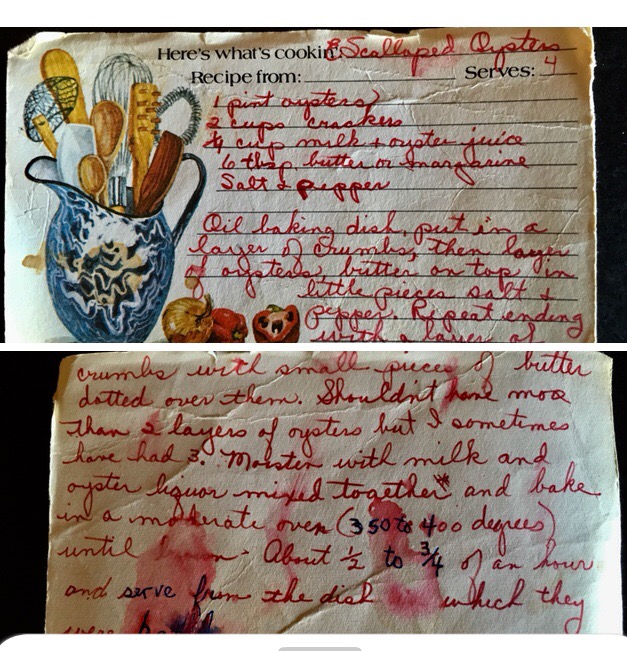 Here's what's cookin' Scalloped Oysters
Recipe from: Serves: 4
1 pint oysters
2 cups crackers
cup milk + oyster juice
6 tbsp butter or margarine
Salt & pepper
Oil baking dish, put in a
layer of crumbs, then layer
of oysters, butter on top in
little pieces salt &
pepper. Repeat ending
with a layer of
crumbs with small pieces of butter
dotted over them. Shouldn't have more
than 2 layers of oysters but I sometimes
have had 3. Moisten with milk and
oyster liquor mixed together* and bake
in a moderate oven (350 to 400 degrees)
until About 1/2 to 3/4 of an hour
and serve from the dish which they
were